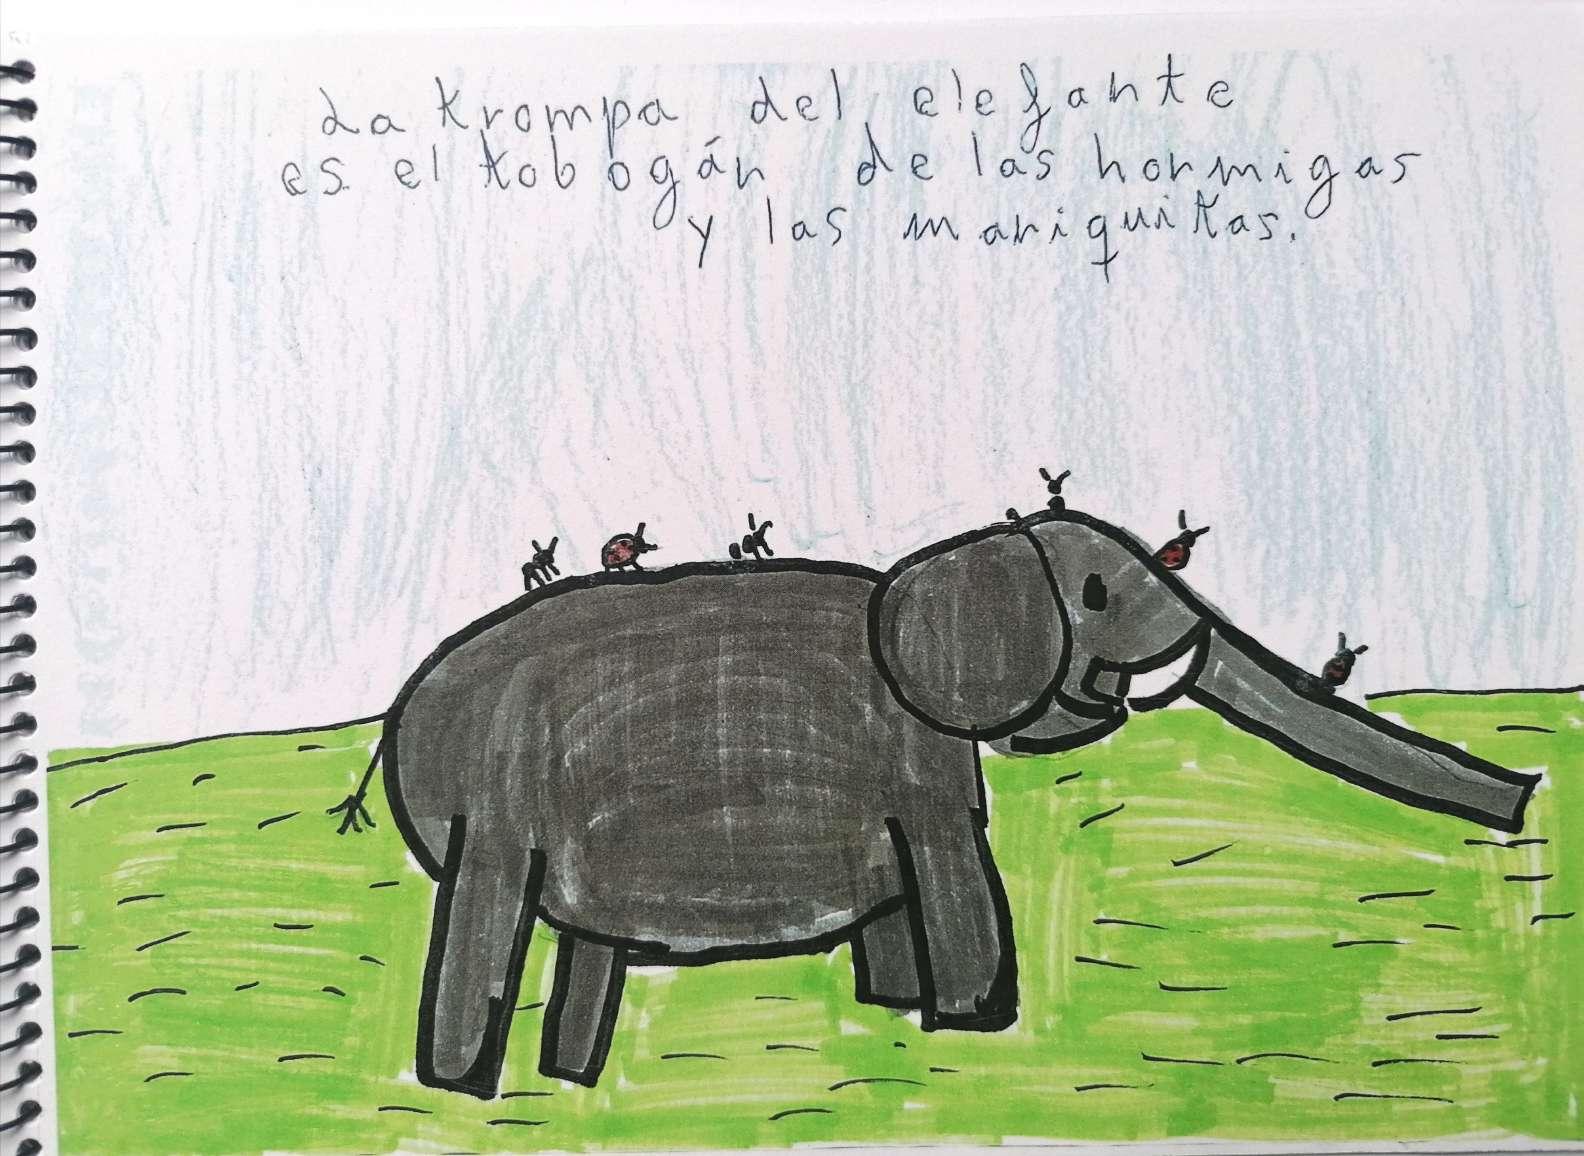 La trompa del elefante
es el tobogán de las hormigas
y las mariquitas.